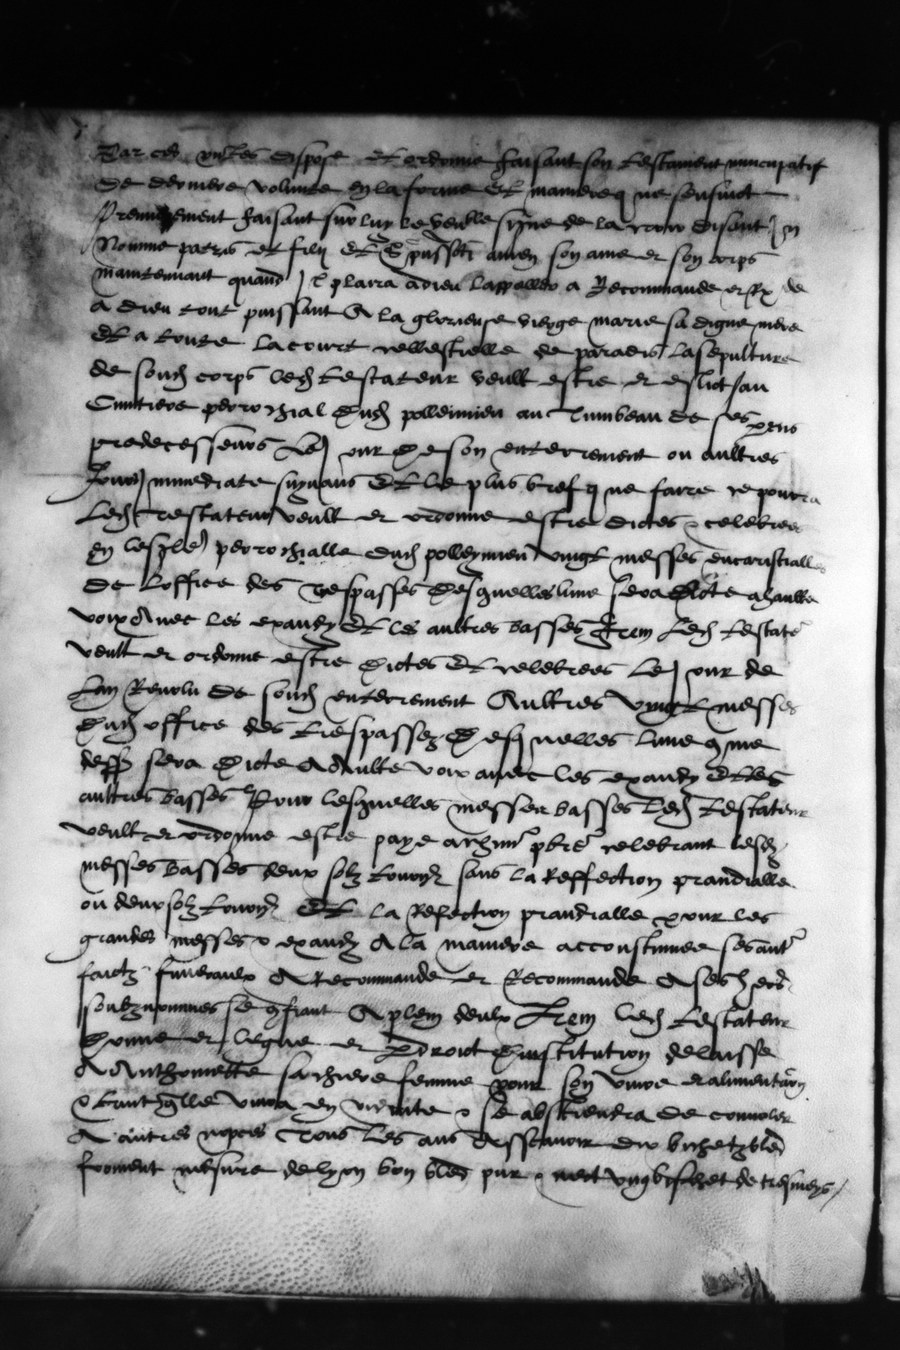 Par ces pntes dispose et ordonne faisant son testament nuncupatif
de derniere volunte en la forme et maniere q ne sensuict
Premierement faisant sur luy le venble signe de la croix disant In
Nomine patris et filii et spussctj amen son ame et son corps
maintenant quand Il plaira a dieu lappeller a Recommande et Rx de
a dieu tout puissant A la glorieuse vierge marie sa digne mere
et a toute la court cellestielle de paradis la sepulture
de soud corps led testateur veult estre et eslict sau
Cimitiere perrochial dud polleimieu au tumbeau de ses
predecesseurs Le Jour de son enterrement ou aultres
Jours immediate suyvans et le plus bref q ne faire ce pourra
Led testateur veult et ordonne estre dictes & celebrees
en lesgle perrochialle dud polleymieu vingt messes
de loffice des trespasses desquelles lune sera dicte a haulte
voix Avec les exaudy et les aultres basses Item Led testatr
veult et ordonne estre dictes et celebrees Le Jour de
Lan Revolu de soud enterrement Aultres vingt messes
dud office des trespassez desquelles lune come
dessus sera dicte A aulte voix avec les exaudy et les
aultres basses Pour lesquelles messes basses led testateur
veult et ordonne estre paye a chun pbre celebrant lesd
messes basses deux solz tournoys sans la Reffection prandialle
ou deux solz tournoys et la Refection prandialle pour les
grandes messes & exaudy A la maniere accoustumee
faictz funeraulx A Recommande et Recommande A ses hers
soubznommes se confiant A plein deulx Item led testateur
donne et legue et p droict dinstitution delaisse
A Anthoinette sa chiere femme pour son vivre et alimentaon
& tant qlle vivra en viduite & se abstiendra de convoler
A autres nopces tous les ans Assavoir dix bichetz bled
froment mesure de lyon bon bled pur & nect ung bischet de